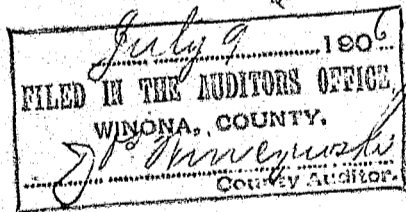 July 9 1906
FILED IN THE AUDITORS OFFICE,
WINONA, COUNTY,
County Auditor.